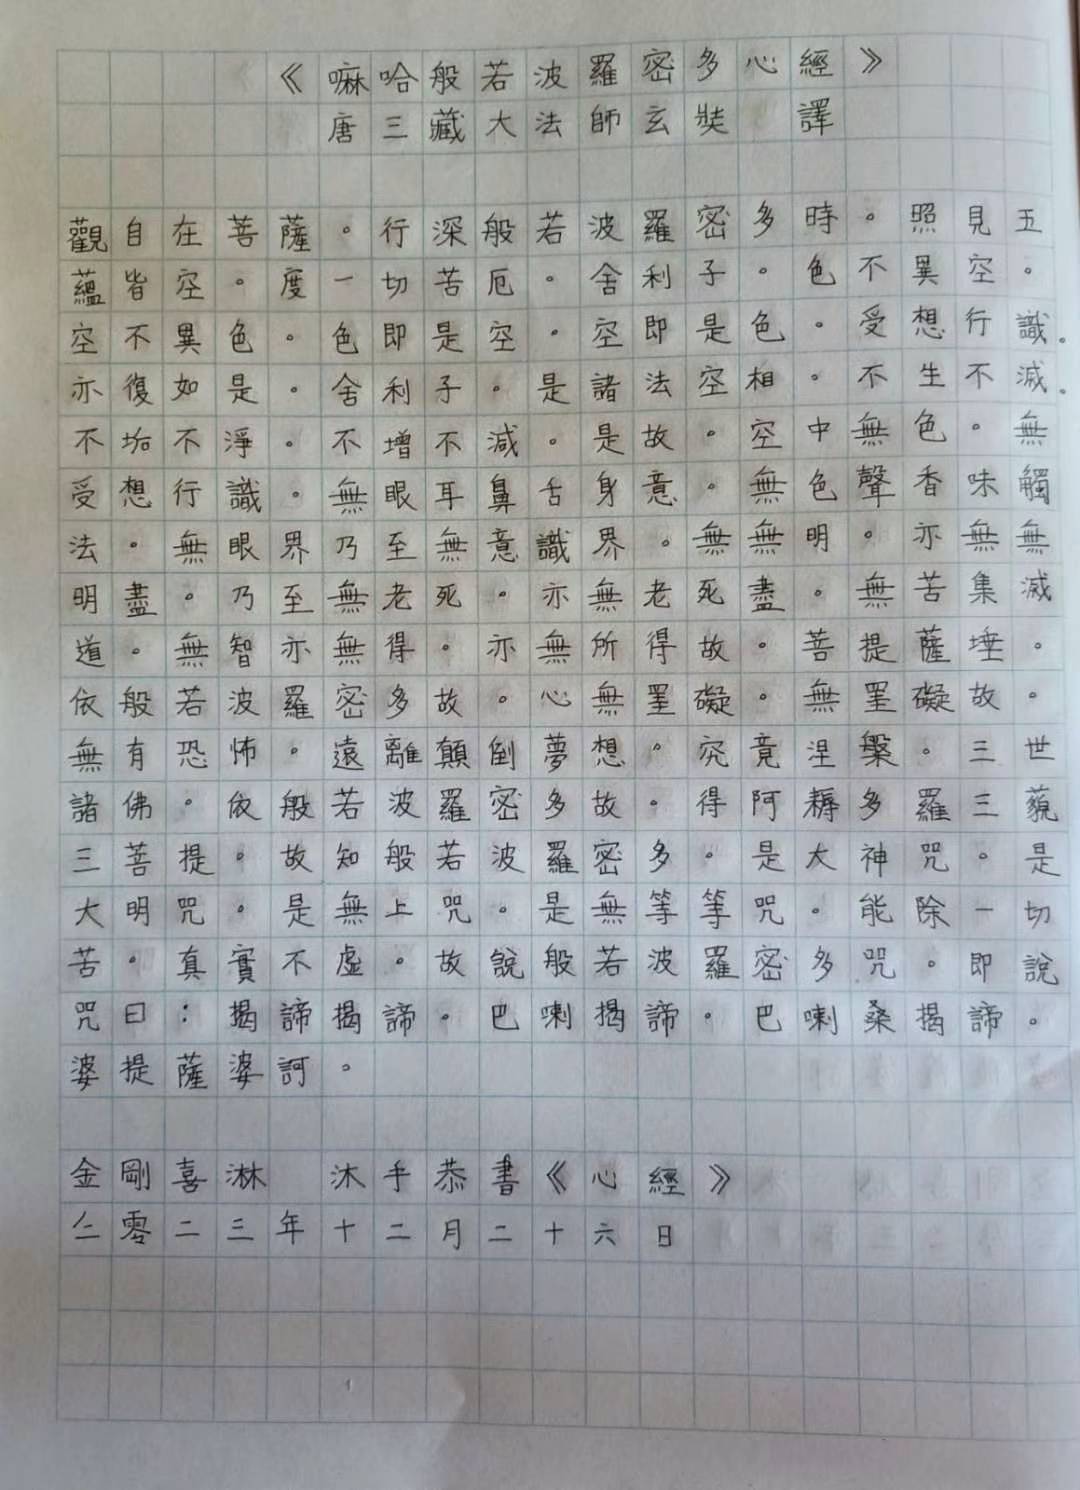 《嘛哈般若波羅密多心經》
唐三藏大法師玄奘 譯
觀自在菩薩。行深般若波羅密多時。照見五
蘊皆空。度一切苦厄。舍利子。色不異空。
空不異色。色即是空。空即是色。受想行識。
亦復如是。舍利子。是諸法空相。不生不滅。
不垢不淨。不增不減。是故。空中無色。無
受想行識。無眼耳鼻舌身意。無色聲香味觸
法。無眼界乃至無意識界。無無明。亦無無
明盡。乃至無老死。亦無老死盡。無苦集滅
道。無智亦無得。亦無所得故。菩提薩埵。
依般若波羅密多故。心無罣礙。無罣礙故。
無有恐怖。遠離顛倒夢想。究竟涅槃。三世
諸佛。依般若波羅密多故。得阿耨多羅三藐
三菩提。故知般若波羅密多。是大神咒。是
大明咒。是無上咒。是無等等咒。能除一切
苦。真實不虛。故說般若波羅密多咒。即說
咒曰：揭諦揭諦。巴喇揭諦。巴喇桑揭諦。
婆提薩婆訶。
金剛喜淋 沐手恭書《心經》
二零二三年十二月二十六日